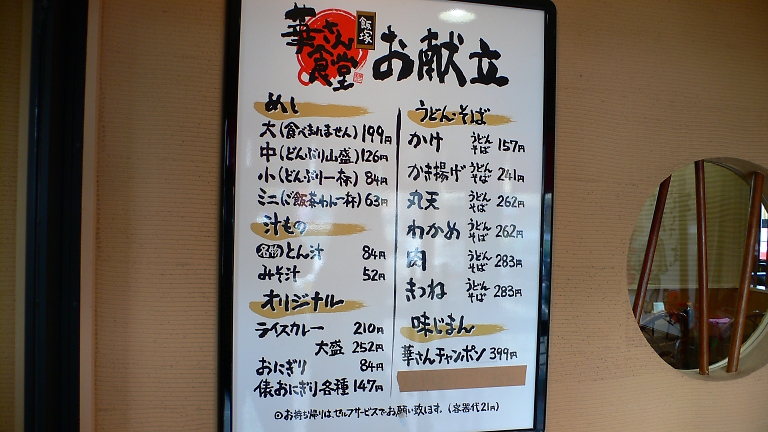 華さん食堂
飯塚
お献立
めし
大(食べきれません) 199円
中(どんぶり山盛) 126円
小(どんぶり一杯) 84円
ミニ(ご飯茶わん一杯) 63円
汁もの
名物 とん汁 84円
みそ汁 52円
オリジナル
ライスカレー 210円
大盛 252円
おにぎり 84円
俵おにぎり各種 147円
うどん・そば
かけ うどん そば 157円
かき揚げ うどん そば 241円
丸天 うどん そば 262円
わかめ うどん そば 262円
肉 うどん そば 283円
きつね うどん そば 283円
味じまん
華さんチャンポン 399円
◎お持ち帰りは、セルフサービスでお願い致します。(容器代21円)